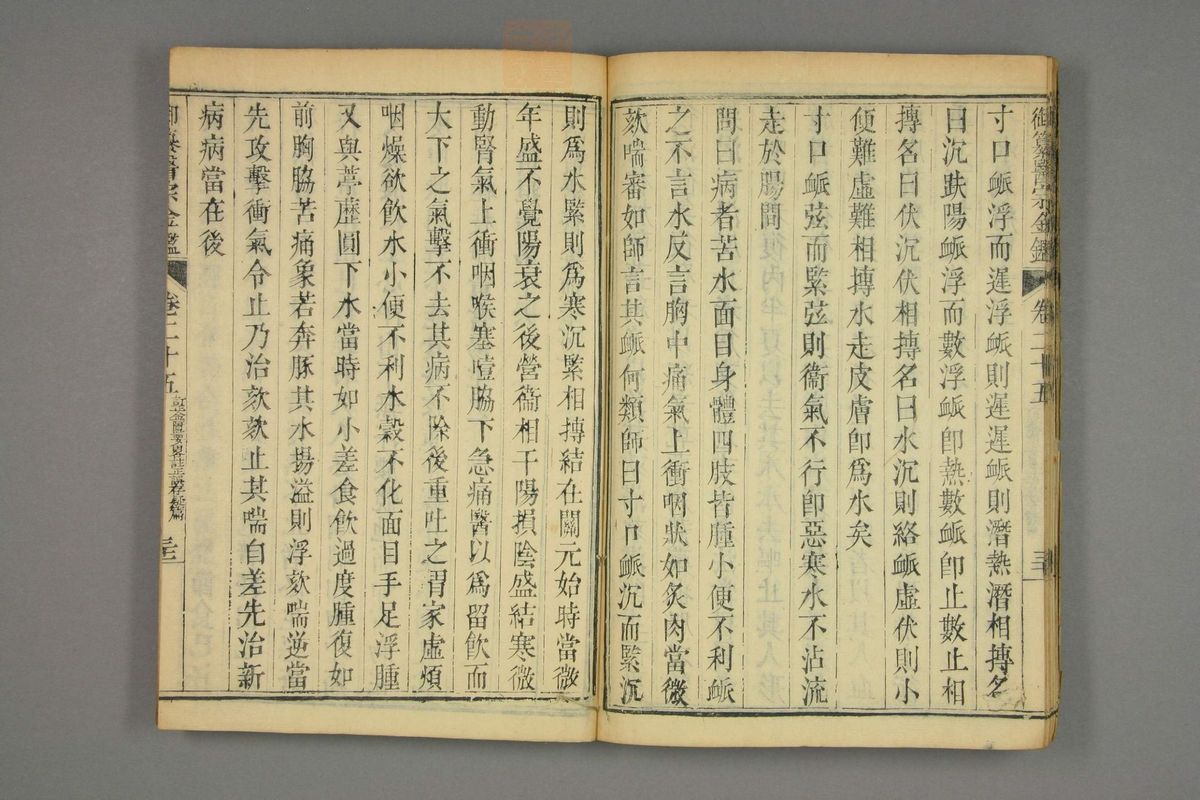 御纂醫宗金鑑 卷二十五
寸口衇浮而遲浮衇則遲遲衇則潛熱潛相摶名
曰沉趺陽衇浮而數浮衇卽熱數衇卽止數止相
摶名曰伏沉伏相摶名曰水沉則絡衇虛伏則小
便難虛難相摶水走皮膚卽爲水矣
寸口衇弦而緊弦則衞氣不行卽惡寒水不沾流
走於腸間
問曰病者苦水面目身體四肢皆腫小便不利衇
之不言水反言胸中痛氣上衝咽狀如炙肉當微
欬喘審如師言其衇何類師曰寸口衇沉而緊沉
則爲水緊則爲寒沉緊相摶結在關元始時當微
年盛不覺陽衰之後營衞相干陽損陰盛結寒微
動腎氣上衝咽喉塞噎脇下急痛醫以爲留飲而
大下之氣擊不去其病不除後重吐之胃家虛煩
咽燥欲飲水小便不利水穀不化面目手足浮腫
又與葶藶圓下水當時如小差食飲過度腫復如
前胸脇苦痛象若奔豚其水揚溢則浮欬喘逆當
先攻擊衝氣令止乃治欬欬止其喘自差先治新
病病當在後
御纂醫宗金鑑 卷二十五